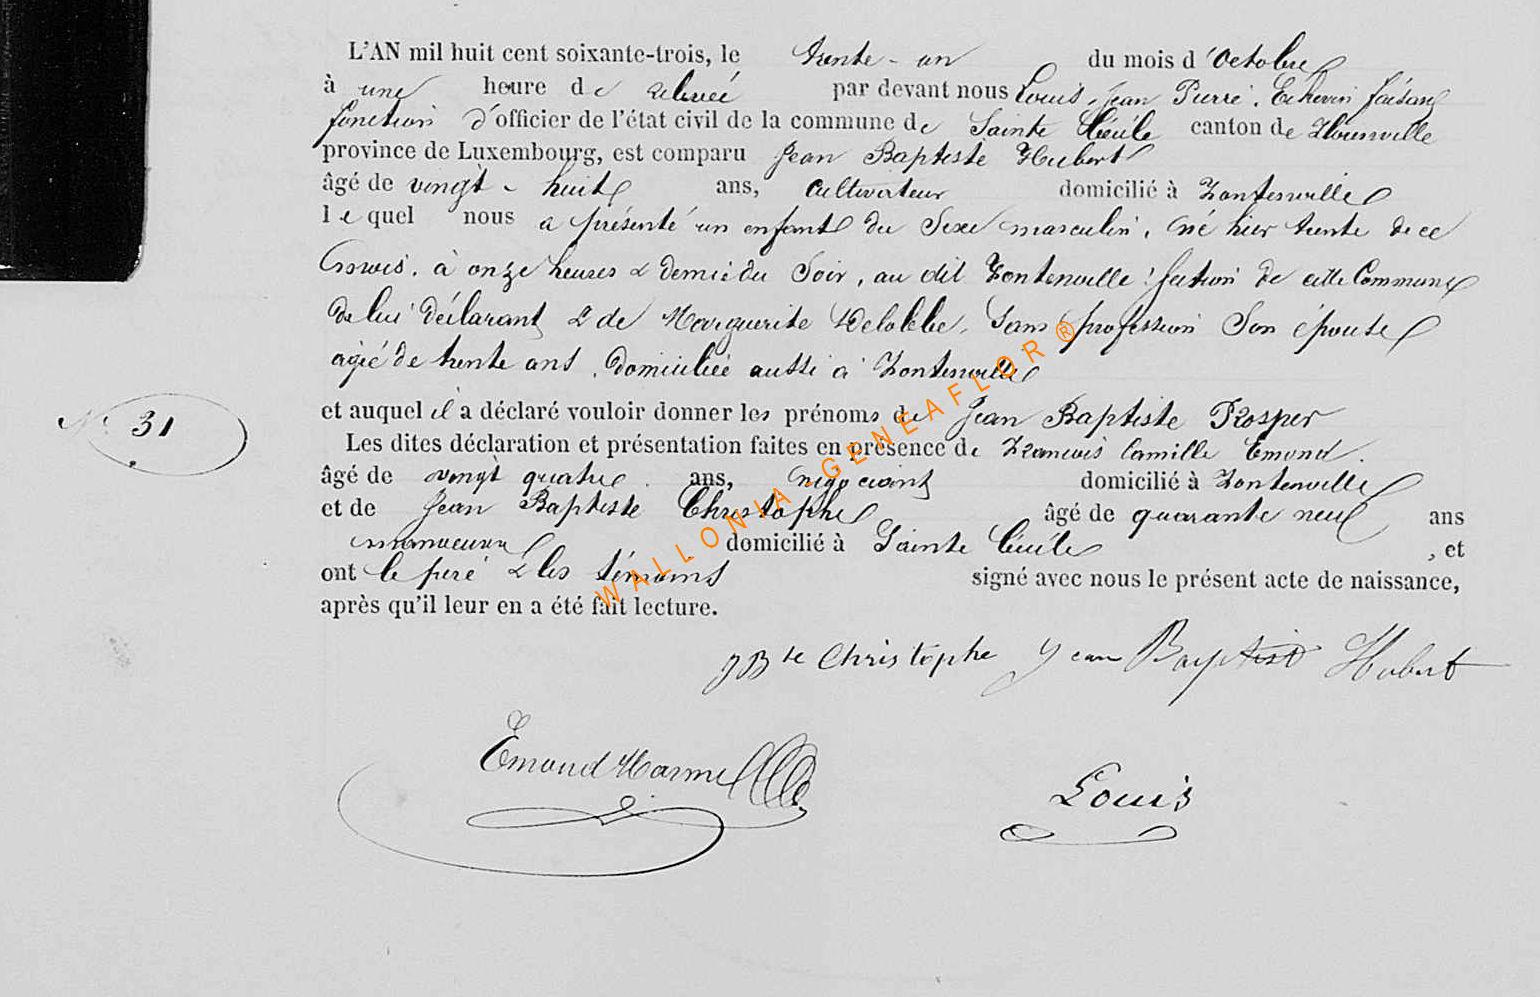 L'AN mil huit cent soixante-trois, le trente-un du mois d'octobre
à une heure de relevée par devant nous Louis, Jean Pierre, Echevin faisant
fonction d'officier de l'état civil de la commune de Sainte Cécile canton de Florenville
province de Luxembourg, est comparu Jean Baptiste Hubert
âgé de vingt-huit ans, cultivateur domicilié à Fontenoille
lequel nous a présenté un enfant du Sexe masculin, né hier trente de ce
mois, à onze heures & demie du Soir, au dit Fontenoille section de cette Commune
N° 31
de lui déclarant & de Marguerite sans profession Son épouse
agée de trente ans, domiciliée aussi à Fontenoille
et auquel il a déclaré vouloir donner les prénoms de Jean Baptiste Prosper
Les dites déclaration et présentation faites en présence de François Camille Emond
âgé de vingt quatre ans, négociant domicilié à Fontenoille
et de Jean Baptiste Christophe âgé de quarante neuf ans
manoeuvre domicilié à Sainte Cécile, et
ont le père & les témoins signé avec nous le présent acte de naissance,
après qu'il leur en a été fait lecture.
JBte Christophe Jean Baptist Hubert
Emond
Louis
WALLONIA-GENEAFLOR®